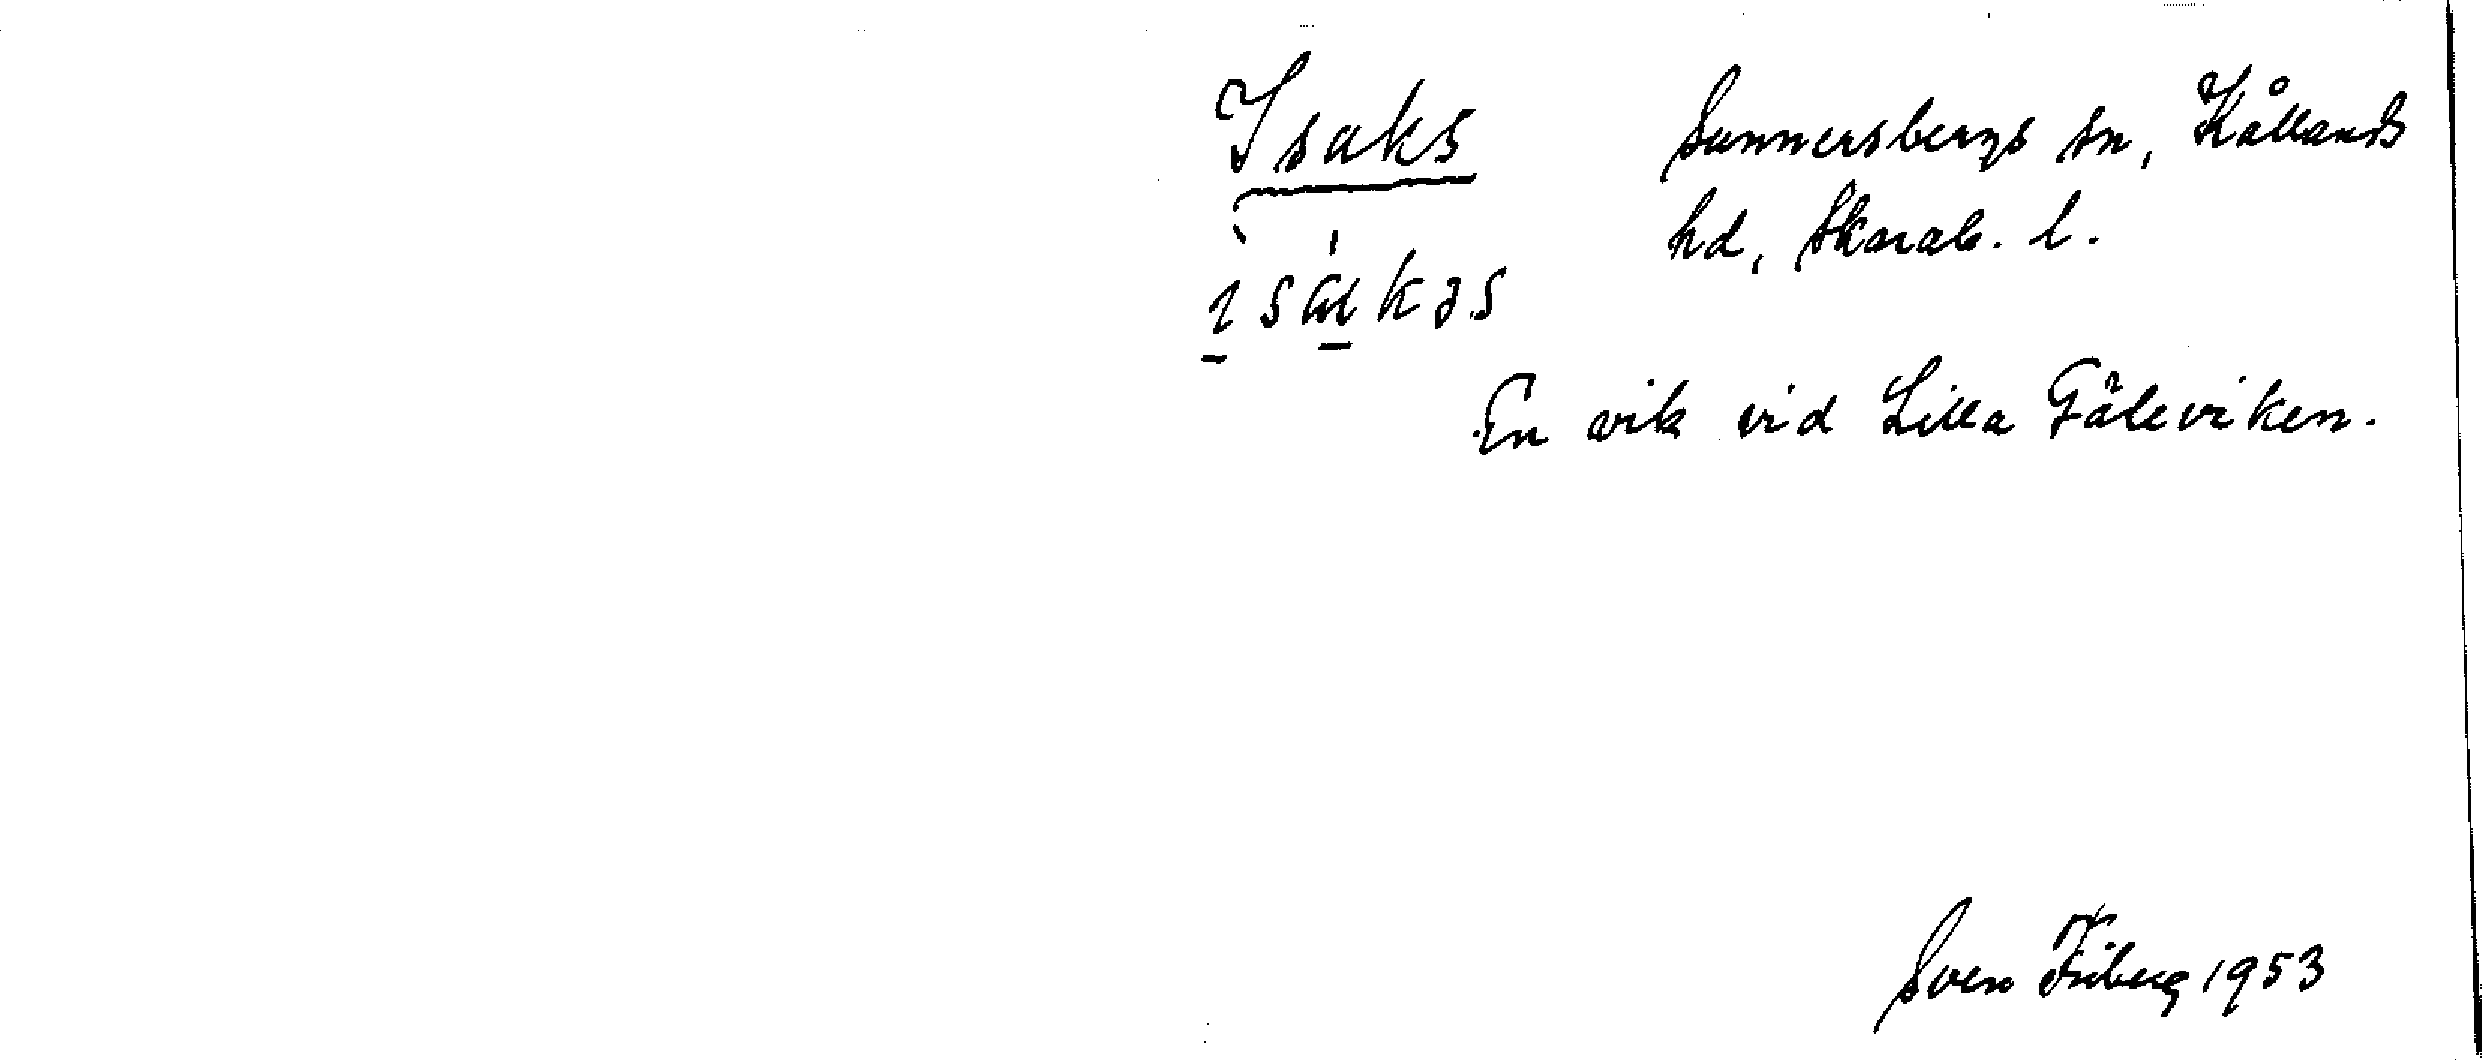 Isaks Sunnersbergs sn, Kållands
hd, Skarab. l.
En vik vid Lilla Fåleviken.
Sven Friberg 1953